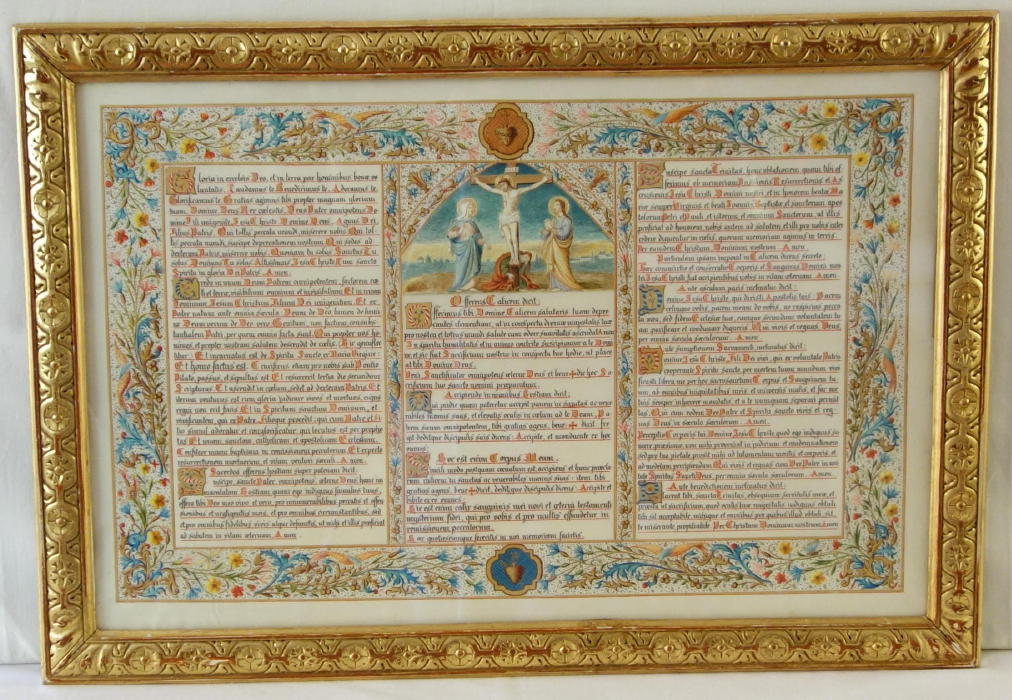 Gloria in excelsis Deo, et in terra pax hominibus bonæ vo
luntatis. Laudamus te. Benedicimus te. Adoramus te.
Glorificamus te. Gratias agimus tibi propter magnam gloriam
tuam. Domine Deus Rex cœlestis, Deus Pater omnipotens. Do
mine Fili unigenite, Jesu Christe. Domine Deus, Agnus Dei,
Filius Patris. Qui tollis peccata mundi, miserere nobis. Qui tol
lis peccata mundi, suscipe deprecationem nostram. Qui sedes ad
dexteram Patris, miserere nobis. Quoniam tu solus Sanctus. Tu
solus Dominus. Tu solus Altissimus, Jesu Christe. Cum Sancto
Spiritu in gloria Dei Patris. Amen.
Credo in unum Deum, Patrem omnipotentem, factorem cœ
li et terræ, visibilium omnium et invisibilium. Et in unum
Dominum Jesum Christum, Filium Dei unigenitum. Et ex
Patre natum ante omnia sæcula. Deum de Deo, lumen de lumi
ne, Deum verum de Deo vero. Genitum, non factum, consubs
tantialem Patri: per quem omnia facta sunt. Qui propter nos ho
mines, et propter nostram salutem descendit de cœlis. Hic genuflec
titur: Et incarnatus est de Spiritu Sancto ex Maria Virgine:
Et homo factus est. Crucifixus etiam pro nobis sub Pontio
Pilato, passus, et sepultus est. Et resurrexit tertia die secundum
Scripturas. Et ascendit in cœlum, sedet ad dexteram Patris. Et
iterum venturus est cum gloria judicare vivos et mortuos, cujus
regni non erit finis. Et in Spiritum Sanctum Dominum, et
vivificantem, qui ex Patre, Filioque procedit, qui cum Patre et Fi
lio simul adoratur et conglorificatur, qui locutus est per prophe
tas. Et unam, sanctam, catholicam et apostolicam Ecclesiam.
Confiteor unum baptisma in remissionem peccatorum. Et expecto
resurrectionem mortuorum, et vitam venturi sæculi. Amen.
Sacerdos offerens hostiam super patenam dicit:
Suscipe, sancte Pater, omnipotens, æterne Deus, hanc im
maculatam Hostiam, quam ego indignus famulus tuus,
offero tibi Deo meo vivo et vero, pro innumerabilibus peccatis et offen
sionibus et negligentiis meis, et pro omnibus circumstantibus, sed
et pro omnibus fidelibus vivis atque defunctis, ut mihi et illis proficiat
ad salutem in vitam æternam. Amen.
Offerens Calicem dicit:
Offerimus tibi, Domine, Calicem salutaris tuam depre
cantes clementiam, ut in conspectu divinæ majestatis tuæ
pro nostra et totius mundi salute cum odore suavitatis ascendat. Amen.
In spiritu humilitatis et in animo contrito suscipiamur a te Domi
ne, et sic fiat Sacrificium nostrum in conspectu tuo hodie, ut placeat
tibi Domine Deus.
Veni Sanctificator omnipotens æterne Deus et bene✠dic hoc Sa
crificium tuo sancto nomini præparatum.
Accipiendo in manibus Hostiam dicit:
Qui pridie quam pateretur accepit panem in sanctas ac vene
rabiles manus suas, et elevatis oculis in cœlum ad te Deum, Pa
trem suum omnipotentem, tibi gratias agens, bene✠dixit, fre
git deditque discipulis suis dicens: Accipite, et manducate ex hoc
omnes:
Hoc est enim Corpus Meum.
Simili modo postquam cœnatum est, accipiens et hunc præcla
rum calicem in sanctas ac venerabiles manus suas: item tibi
gratias agens, bene✠dixit, deditque discipulis dicens: Accipite et
bibite ex eo omnes:
Hic est enim calix sanguinis mei novi et æterni testamenti
mysterium fidei, qui pro vobis et pro multis effundetur in
remissionem peccatorum.
Hæc quotiescumque feceritis in mei memoriam facietis.
Suscipe sancta Trinitas, hanc oblationem, quam tibi of
ferimus ob memoriam Passionis Resurrectionis et As
censionis Jesu Christi Domini nostri, et in honorem beatæ Ma
riæ semper Virginis et beati Joannis Baptistæ et sanctorum apos
tolorum Petri et Pauli, et istorum, et omnium Sanctorum, ut illis
proficiat ad honorem, nobis autem ad salutem, et illi pro nobis inter
cedere dignentur in cœlis, quorum memoriam agimus in terris.
Per eumdem Christum Dominum nostrum. Amen.
Particulam ipsam imponat in Calicem dicens secreto:
Hæc commixtio et consecratio Corporis et Sanguinis Domini nos
tri Jesu Christi fiat accipientibus nobis in vitam æternam. Amen.
Ante osculum pacis inclinatus dicit:
Domine Jesu Christe, qui dixisti Apostolis tuis: Pacem
relinquo vobis, pacem meam do vobis, ne respicias pecca
ta mea, sed fidem Ecclesiæ tuæ, eamque secundum voluntatem tu
am pacificare et coadunare digneris. Qui vivis et regnas Deus,
per omnia sæcula sæculorum. Amen.
Ante sumptionem Sacramenti inclinatus dicit:
Domine Jesu Christe, Fili Dei vivi, qui ex voluntate Patris
cooperante Spiritu Sancto per mortem tuam mundum vivi
ficasti libera me per hoc sacrosanctum Corpus et Sanguinem tu
um ab omnibus iniquitatibus meis et universis malis, et fac me
tuis semper inhærere mandatis, et a te nunquam separari permit
tas. Qui cum eodem Deo Patre et Spiritu Sancto vivis et reg
nas Deus in sæcula sæculorum. Amen.
Perceptio Corporis tui Domine Jesu Christe quod ego indignus su
mere præsumo, non mihi proveniat in judicium et condemnationem
sed pro tua pietate prosit mihi ad tutamentum mentis et corporis, et
ad medelam percipiendam. Qui vivis et regnas cum Deo Patre in uni
tate Spiritus Sancti Deus, per omnia sæcula sæculorum. Amen.
Ante benedictionem inclinatus dicit:
Placeat tibi, sancta Trinitas, obsequium servitutis meæ, et
præsta ut sacrificium, quod oculis tuæ majestatis indignus obtuli,
tibi sit acceptabile, mihique et omnibus pro quibus illud obtuli, sit,
te miserante, propitiabile. Per Christum Dominum nostrum. Amen